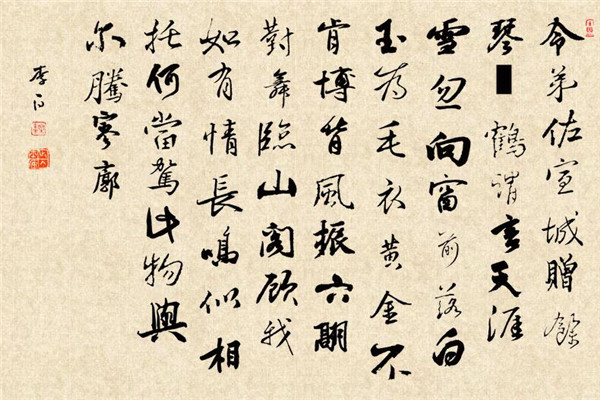 令弟佐宣城贈餘
琴█鶴謂言天涯
雪忽向窗前落白
玉為毛衣黃金不
肯博背風振六翮
對舞臨山閣顧我
如有情長鳴似相
托何當駕此物與
尔騰寥廓
李白